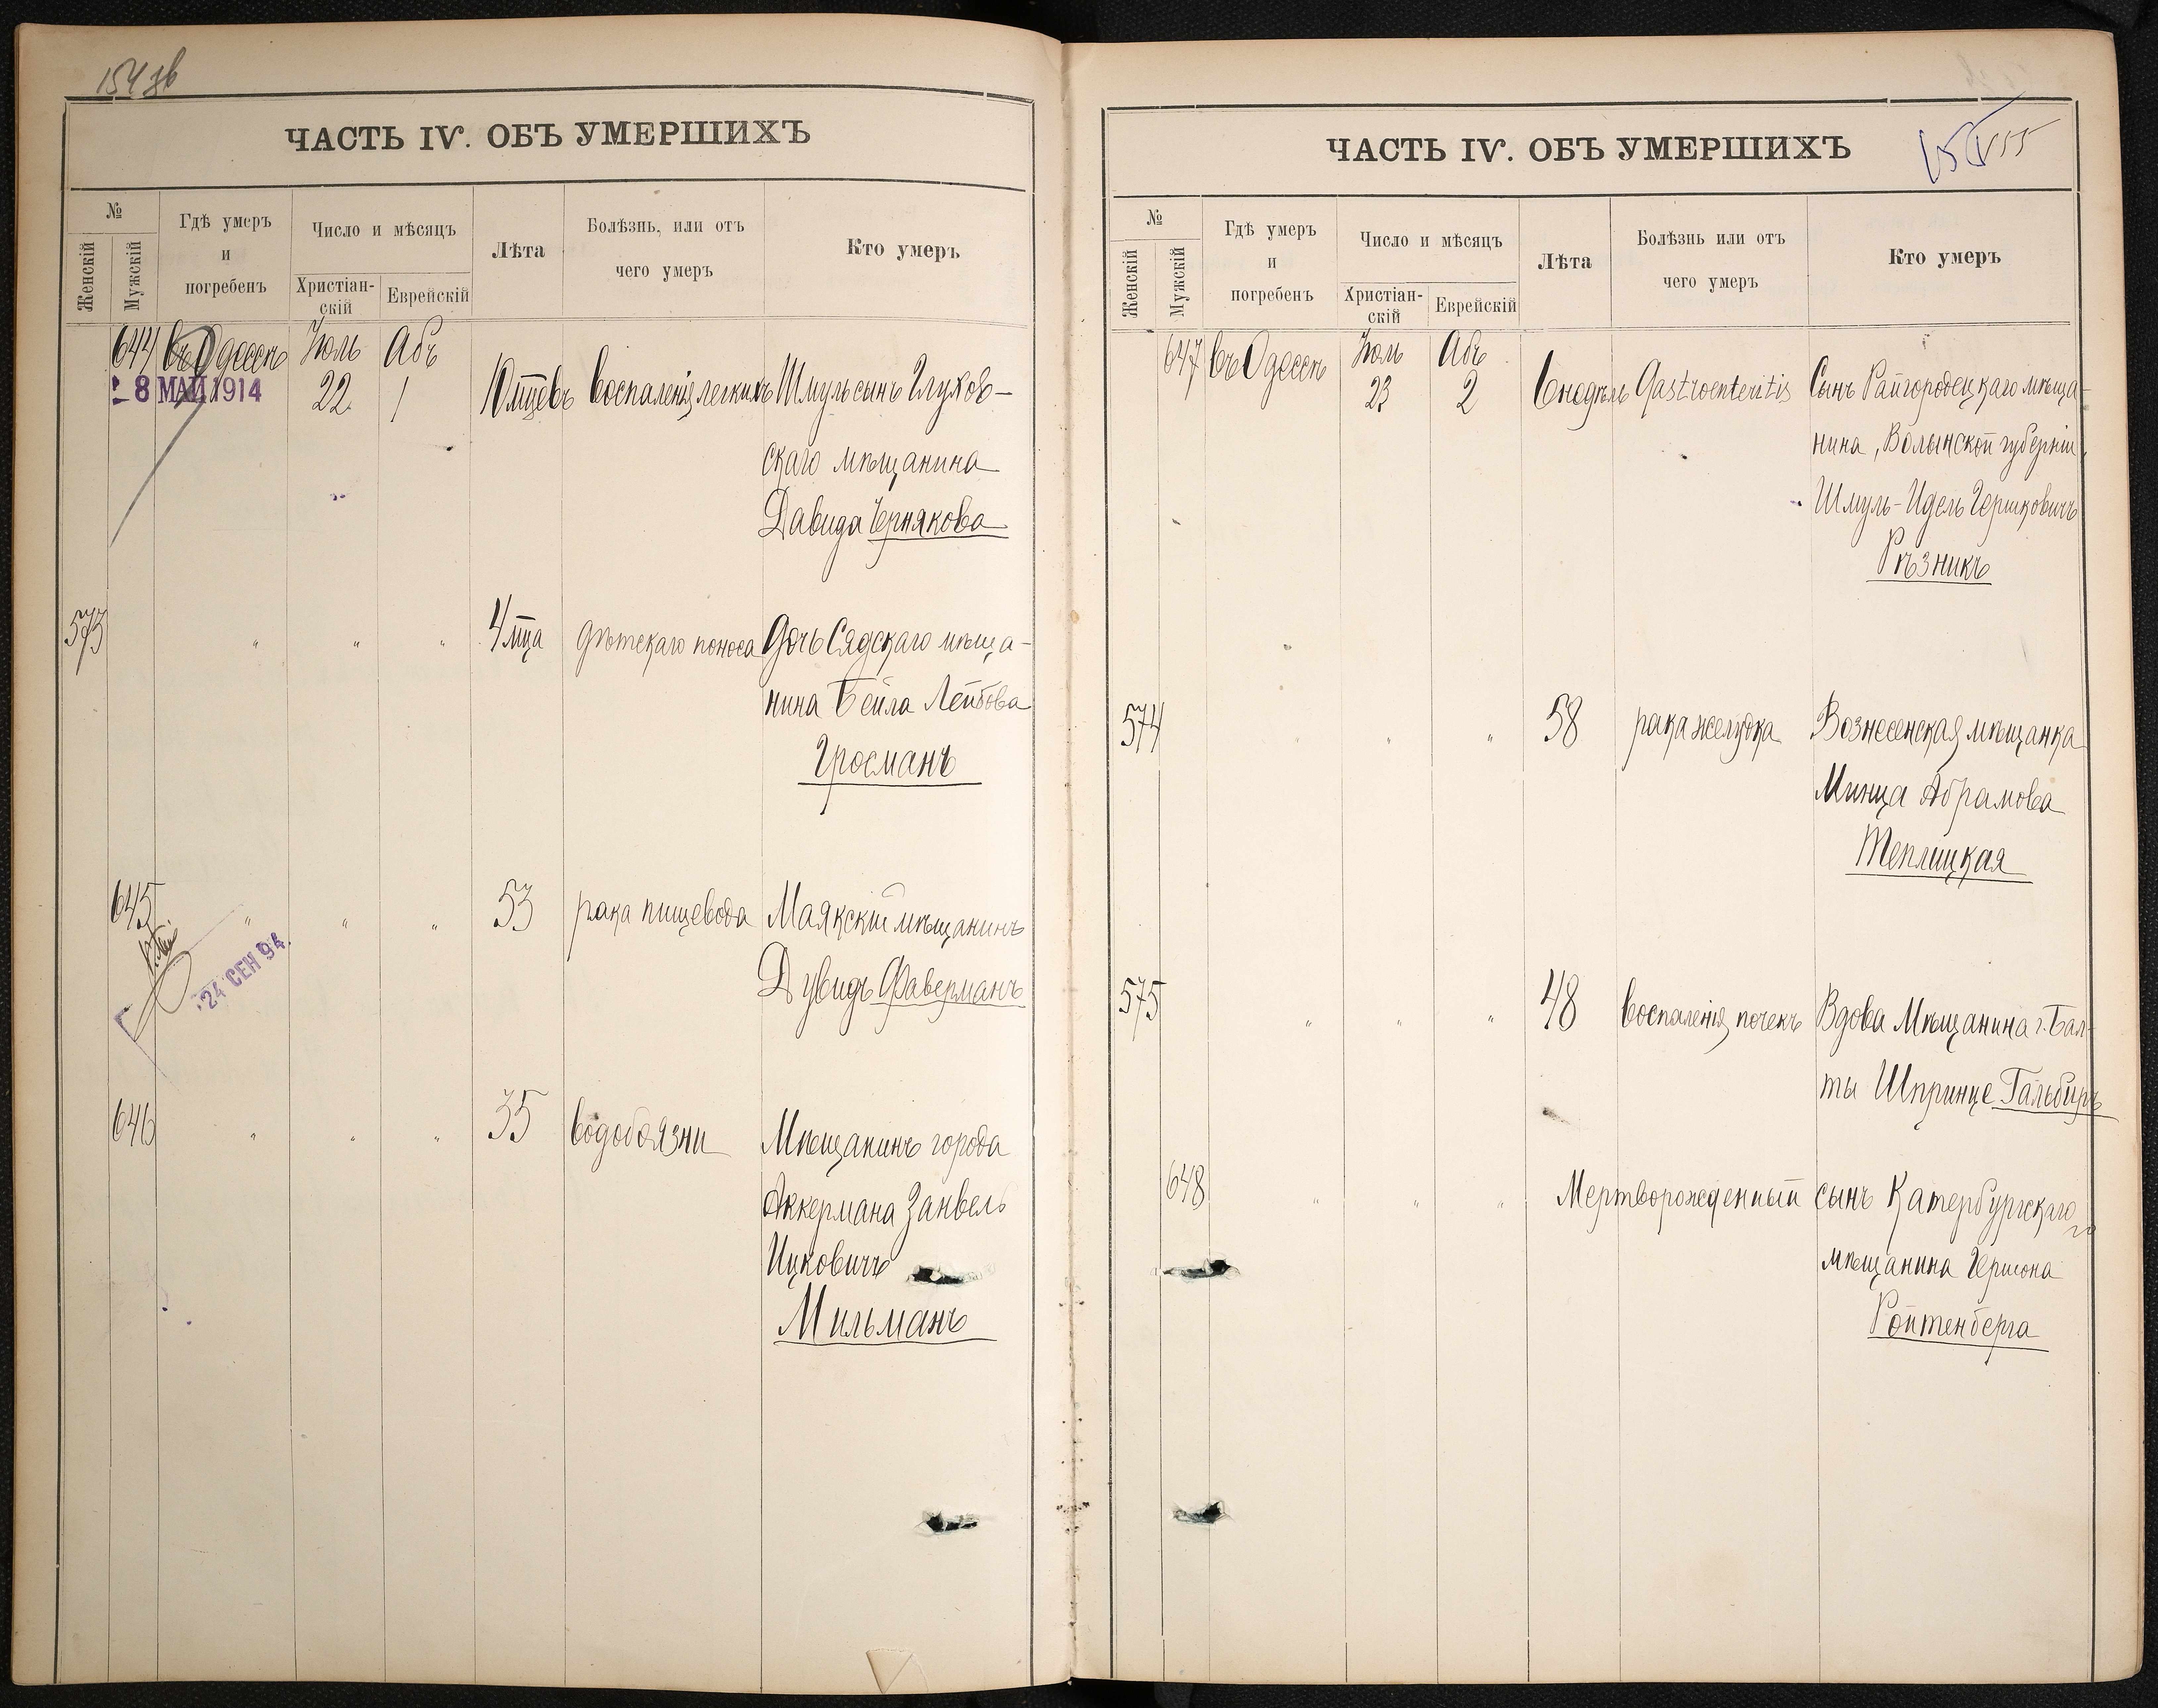 154 зв
ЧАСТЬ IV. ОБЪ УМЕРШИХЪ
№
Женскій
Мужскій
Гдѣ умеръ
и
погребенъ
Число и мѣсяцъ
Христіан-
скій
Еврейскій
Лѣта
Болѣзнь, или отъ
чего умеръ
Кто умеръ
644 въ Одессѣ Іюль Абъ
8 МАЙ 1914
22 1 10 мцевъ воспаленія легкихъ Шмуль сынъ Глухов-
скаго мѣщанина
Давида Чернякова
573 " " " 4 мца дѣтскаго поноса Дочь Сядскаго мѣща-
нина Бейла Лейбова
Гросманъ
645 " " " 53 рака пищевода Маякскій мѣщанинъ
24 СЕН 94
Дувидъ Фаверманъ
646 " " " 35 водобоязни Мѣщанинъ города
Аккермана Занвель
Ицковичъ
Мильманъ
ЧАСТЬ IV. ОБЪ УМЕРШИХЪ
155
№
Женскій
Мужскій
Гдѣ умеръ
и
погребенъ
Число и мѣсяцъ
Христіан-
скій
Еврейскій
Лѣта
Болѣзнь или отъ
чего умеръ
Кто умеръ
647 въ Одессѣ Іюль Абъ
23 2 6 недѣль Gastroenteritis Сынъ Райгородецкаго мѣща-
нина, Волынской губерніи
Шмуль-Идель Гершковичъ
Рѣзникъ
574 " " " 58 рака желудка Вознесенская мѣщанка
Минца Абрамова
Теплицкая
575 " " " 48 воспаленія почекъ Вдова Мѣщанина г. Бал-
ты Шпринце Гальбиръ
648 " " " Мертворожденный сынъ Катербургскаго
мѣщанина Гершона
Ройтенберга